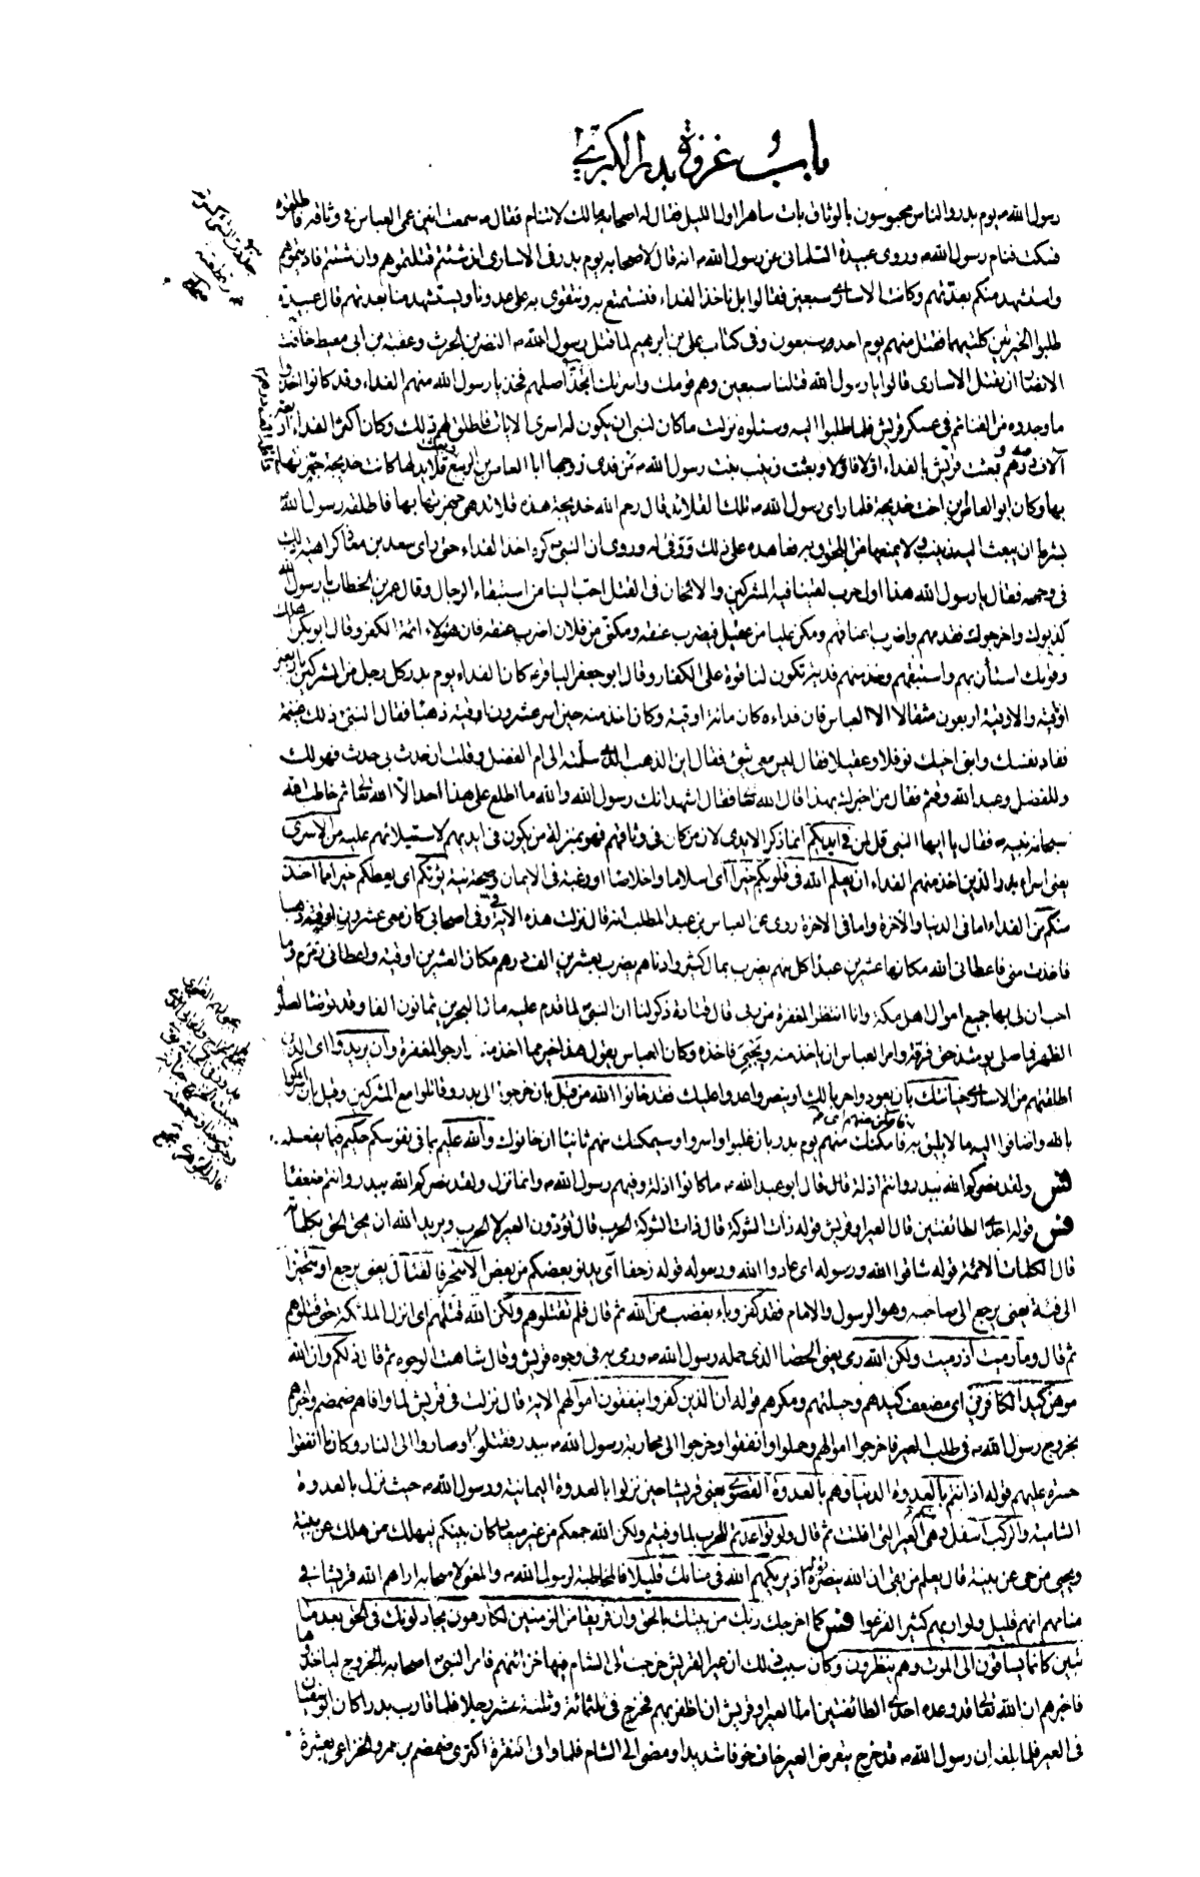 باب غزوة بدر الكبرى
رسول الله ص يوم بدر والناس محبوسون بالوثاق بات ساهرا اول الليل فقال له اصحابه مالك لا تنام فقال ص سمعت انين عمى العباس فى وثاقه فاطلقوه
فسكت فنام رسول الله ص وروى عبيدة السلمانى عن رسول الله ص انه قال لاصحابه يوم بدر فى الاسارى ان شئتم قتلتموهم وان شئتم فاديتموهم
واستشهد منكم بعدتهم وكانت الاسارى سبعين فقالوا بل ناخذ الفداء فنستمتع به ونتقوى به على عدونا وليستشهد منا بعدتهم قال عبيدة
طلبوا الخيرتين كلتيهما فقتل منهم يوم احد سبعون وفى كتاب على بن ابرهيم لما قتل رسول الله ص النضر بن الحرث وعقبة بن ابى معيط خافت
الانصار ان يقتل الاسارى قالوا يا رسول الله قتلنا سبعين وهم قومك واسرتك اتجذ اصلهم فخذ يا رسول الله منهم الفداء وقد كانوا اخذوا
ما وجدوه من الغنائم فى عسكر قريش فلما طلبوا اليه وسئلوه نزلت ما كان لنبى ان يكون له اسرى الايات فاطلق لهم ذلك وكان اكثر الفداء اربعة
آلاف درهم واقله الف درهم فبعثت قريش بالفداء اولا فاولا وبعثت زينب بنت رسول الله ص من فدى زوجها ابا العاص بن الربيع وبعثت قلايد لها كانت خديجة جهزتها
بها وكان ابو العاص بن اخت خديجة فلما راى رسول الله ص تلك القلائد قال رحم الله خديجة هذه قلائد هى جهزتها بها فاطلقه رسول الله
بشرط ان يبعث اليه زينب ولا يمنعها من اللحوق به فعاهده على ذلك ووفى له وروى ان النبى ص كره اخذ الفداء حتى راى سعد بن معاذ كراهية ذلك
فى وجهه فقال يا رسول الله هذا اول حرب لقينا فيه المشركين والاثخان فى القتل احب الينا من استبقاء الرجال وقال عمر بن الخطاب يا رسول الله
كذبوك واخرجوك فقدمهم واضرب اعناقهم ومكن عليا من عقيل فيضرب عنقه ومكنى من فلان اضرب عنقه فان هؤلاء ائمة الكفر وقال ابو بكر اهلك
وقومك استأن بهم واستبقهم وخذ منهم فدية تكون لنا قوة على الكفار وقال ابو جعفر الباقر ع كان الفداء يوم بدر كل رجل من المشركين اربعين
اوقية والاوقية اربعون مثقالا الا العباس فان فداءه كان مائة اوقية وكان اخذ منه حين اسر عشرون اوقية ذهبا فقال النبى ص ذلك غنيمة
ففاد نفسك وابنى اخيك نوفلا وعقيلا فقال ليس معى شئ فقال اين الذهب الذى سلمته الى ام الفضل وقلت ان حدث بى حدث فهو لك
وللفضل وعبد الله وقثم فقال من اخبرك بهذا قال الله تعالى فقال اشهد انك رسول الله والله ما اطلع على هذا احد الا الله تعالى ثم خاطب الله
سبحانه نبيه ص فقال يا ايها النبى قل لمن فى ايديكم انما ذكر الايدى لان من كان فى وثاقهم فهو بمنزلة من يكون فى ايديهم لاستيلائهم عليه من الاسرى
يعنى اسراء بدر الذين اخذ منهم الفداء ان يعلم الله فى قلوبكم خيرا اى اسلاما واخلاصا او رغبة فى الايمان وصحة نية يؤتكم اى يعطكم خيرا مما اخذ
منكم من الفداء اما فى الدنيا والآخرة واما فى الاخرة روى عن العباس بن عبد المطلب انه قال نزلت هذه الاية فى وفى اصحابى كان معى عشرون اوقية ذهبا
فاخذت منى فاعطانى الله مكانها عشرين عبدا كل منهم يضرب بمال كثير وادناهم يضرب بعشرين الف درهم مكان العشرين اوقية واعطانى زمزم وما
احب ان لى بها جميع اموال اهل مكة وانا انتظر المغفرة من ربى قال قتادة ذكر لنا ان النبى ص لما قدم عليه مال البحرين ثمانون الفا وقد توضأ لصلوة
الظهر فما صلى يومئذ حتى فرقه وامر العباس ان ياخذ منه ويحثى فاخذ وكان العباس يقول هذا خير مما اخذ منا وارجو المغفرة وان يريدوا اى الذين
اطلقتهم من الاسارى خيانتك بان يعودوا حربا لك او ينصروا عدوا عليك فقد خانوا الله من قبل بان خرجوا الى بدر وقاتلوا مع المشركين وقيل بان اشركوا
بالله واضافوا اليه ما لا يليق به فامكن منهم اى فامكنك منهم يوم بدر بان غلبوا واسروا وسيمكنك منهم ثانيا ان خانوك والله عليم بما فى نفوسكم حكيم فيما يفعله
فس ولقد نصركم الله ببدر وانتم اذلة قال قال ابو عبد الله ع ما كانوا اذلة وفيهم رسول الله ص وانما نزل ولقد نصركم الله ببدر وانتم ضعفا
فس قوله احدى الطائفتين قال العير او قريش قوله ذات الشوكة قال ذات الشوكة الحرب قال تؤدون العير لا الحرب ويريد الله ان يحق الحق بكلماته
قال الكلمات الائمة قوله شاقوا الله ورسوله اى عادوا الله ورسوله قوله زحفا اى يدنو بعضكم من بعض الا متحرفا لقتال يعنى يرجع او متحيزا
الى فئة يعنى يرجع الى صاحبه وهو الرسول والامام فقد كفر وباء بغضب من الله ثم قال فلم تقتلوهم ولكن الله قتلهم اى انزل الملائكة حتى قتلوهم
ثم قال وما رميت اذ رميت ولكن الله رمى يعنى الحصا الذى حمله رسول الله ص ورمى به فى وجوه قريش وقال شاهت الوجوه ثم قال ذلكم وان الله
موهن كيد الكافرين اى مضعف كيدهم وحيلتهم ومكرهم قوله ان الذين كفروا ينفقون اموالهم الاية قال نزلت فى قريش لما وافاهم ضمضم واخبرهم
بخروج رسول الله ص فى طلب العير فاخرجوا اموالهم وحملوا وانفقوا وخرجوا الى محاربة رسول الله ص ببدر فقتلوا وصاروا الى النار وكان ما انفقوا
حسرة عليهم قوله اذ انتم بالعدوة الدنيا وهم بالعدوة القصوى يعنى قريشا حين نزلوا بالعدوة اليمانية ورسول الله ص حيث نزل بالعدوة
الشامية والركب اسفل منكم وهى العير التى افلتت ثم قال ولو تواعدتم للحرب لما وفيتم ولكن الله جمعكم من غير ميعاد كان بينكم ليهلك من هلك عن بينة
ويحيى من حى عن بينة قال يعلم من بقى ان الله ينصره قوله اذ يريكهم الله فى منامك قليلا فالمخاطبة لرسول الله ص والمعنى لاصحابه اراهم الله قريشا فى
منامهم انهم قليل ولو اريهم كثيرا لفزعوا فس كما اخرجك ربك من بيتك بالحق وان فريقا من المؤمنين لكارهون يجادلونك فى الحق بعد ما
تبين كانما يساقون الى الموت وهم ينظرون وكان سبب ذلك ان عيرا لقريش خرجت الى الشام فيها خزائنهم فامر النبى ص اصحابه بالخروج لياخذوها
فاخبرهم ان الله تعالى قد وعده احدى الطائفتين اما العير او قريش ان اظفر بهم فخرج فى ثلثمائة وثلثة عشر رجلا فلما قارب بدرا كان ابو سفيان
فى العير فلما بلغه ان رسول الله ص قد خرج يتعرض العير خاف خوفا شديدا ومضى الى الشام فلما وافى النقرة اكترى ضمضم بن عمرو الخزاعى بعشرة